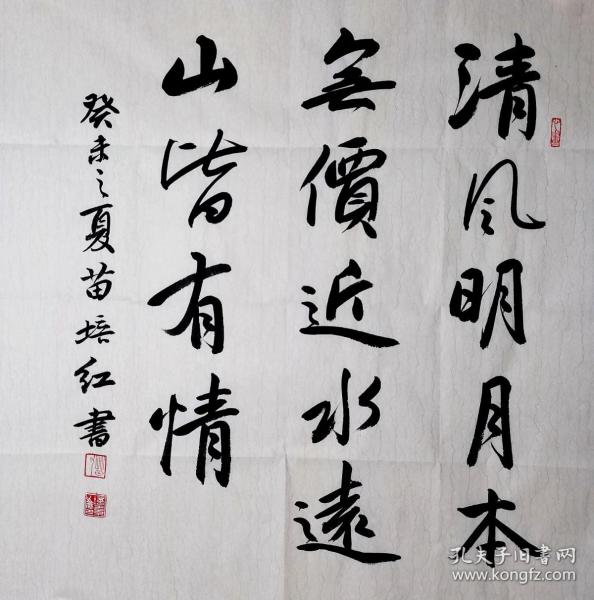 清风明月本
無價近水遠
山皆有情
癸未之夏苗培红書
孔夫子旧書网
www.kongfz.com